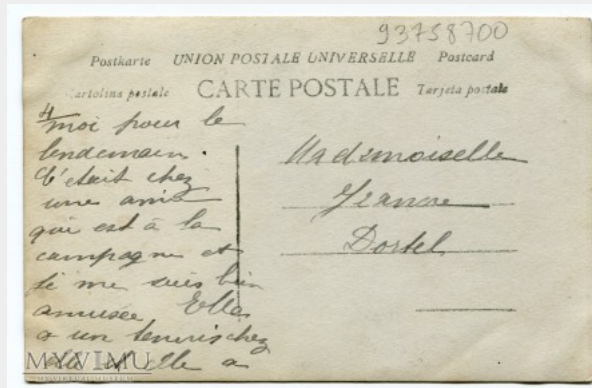 93758700
Postkarte UNION POSTALE UNIVERSELLE Postcard
Cartolina postale CARTE POSTALE Tarjeta postale
4
moi pour le
lendemain.
C'était chez
une amie
qui est à la
campagne et
je me suis bien
amusée Elle
a un tennis chez
elle et elle a
Mademoiselle
Jeanne
Dortel
MYVIMU